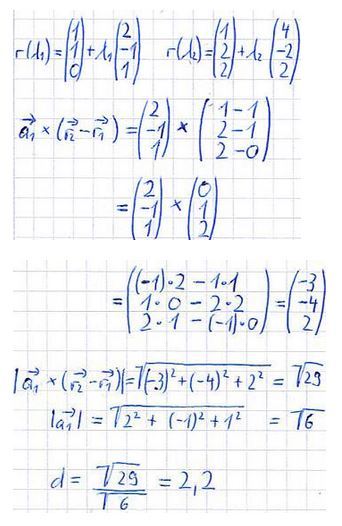 r(λ₁) = (1 1 0) + λ₁ (2 -1 1)   r(λ₂) = (1 2 2) + λ₂ (4 -2 2)
a₁⃗ × (r₂⃗ - r₁⃗) = (2 -1 1) × (1-1 2-1 2-0)
= (2 -1 1) × (0 1 2)
= ((-1)·2 - 1·1 1·0 - 2·2 2·1 - (-1)·0) = (-3 -4 2)
|a₁⃗ × (r₂⃗ - r₁⃗)| = √((-3)² + (-4)² + 2²) = √29
|a₁⃗| = √(2² + (-1)² + 1²) = √6
d = √29 / √6 = 2,2